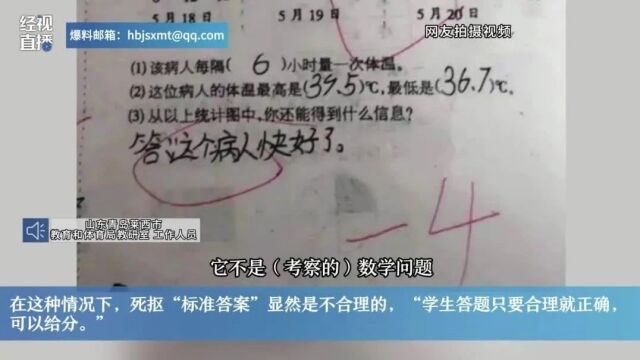 经视直播
爆料邮箱：hbjsxmt@qq.com
5月18日 5月19日 5月20日
网友拍摄视频
(1)该病人每隔(6)小时量一次体温。
(2)这位病人的体温最高是(39.5)℃,最低是(36.7)℃。
(3)从以上统计图中,你还能得到什么信息?
答:这个病人快好了。
-4
山东青岛莱西市
教育和体育局教研室 工作人员
它不是（考察的）数学问题
在这种情况下，死抠“标准答案”显然是不合理的，“学生答题只要合理就正确，
可以给分。”